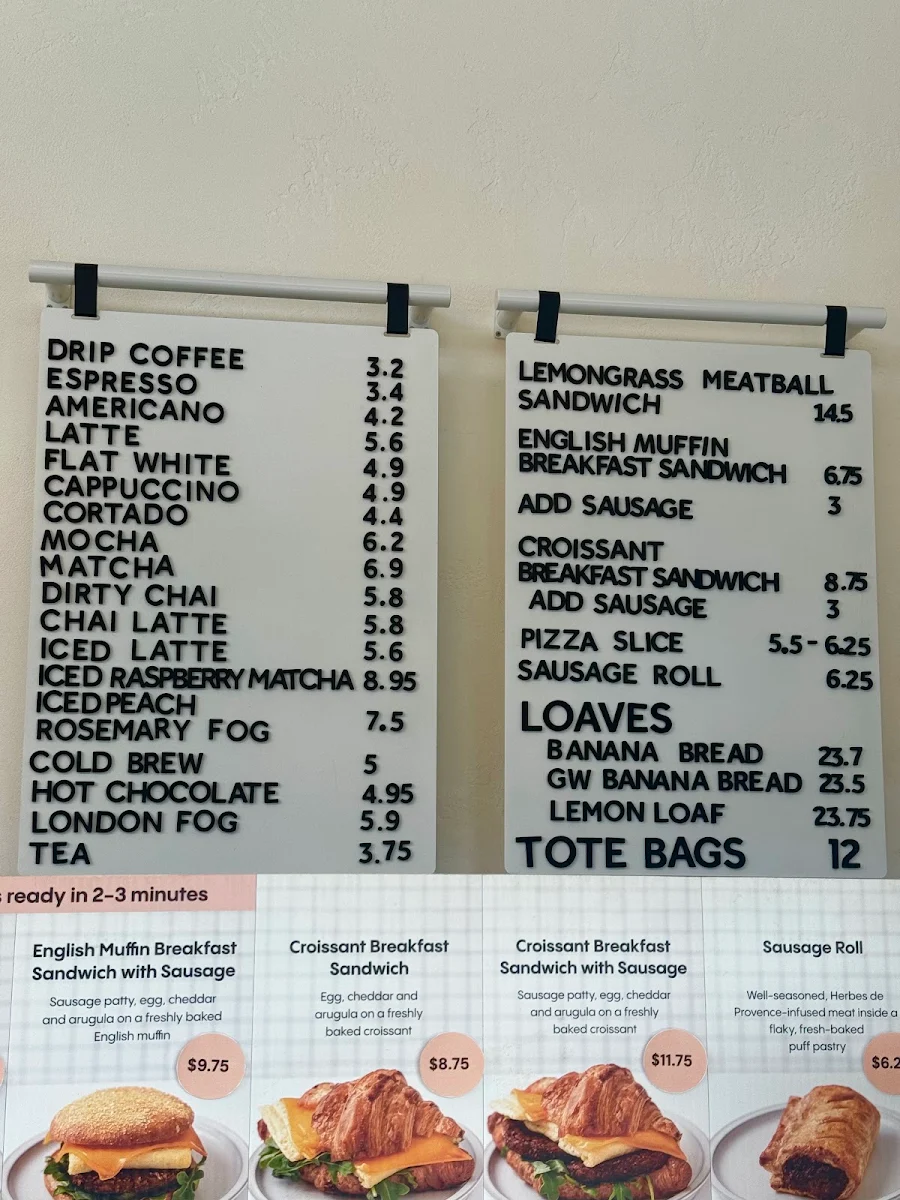 DRIP COFFEE 3.2
ESPRESSO 3.4
AMERICANO 4.2
LATTE 5.6
FLAT WHITE 4.9
CAPPUCCINO 4.9
CORTADO 4.4
MOCHA 6.2
MATCHA 6.9
DIRTY CHAI 5.8
CHAI LATTE 5.8
ICED LATTE 5.6
ICED RASPBERRY MATCHA 8.95
ICED PEACH
ROSEMARY FOG 7.5
COLD BREW 5
HOT CHOCOLATE 4.95
LONDON FOG 5.9
TEA 3.75
LEMONGRASS MEATBALL
SANDWICH 14.5
ENGLISH MUFFIN
BREAKFAST SANDWICH 6.75
ADD SAUSAGE 3
CROISSANT
BREAKFAST SANDWICH 8.75
ADD SAUSAGE 3
PIZZA SLICE 5.5 - 6.25
SAUSAGE ROLL 6.25
LOAVES
BANANA BREAD 23.7
GW BANANA BREAD 23.5
LEMON LOAF 23.75
TOTE BAGS 12
ready in 2-3 minutes
English Muffin Breakfast
Sandwich with Sausage
Sausage patty, egg, cheddar
and arugula on a freshly baked
English muffin
$9.75
Croissant Breakfast
Sandwich
Egg, cheddar and
arugula on a freshly
baked croissant
$8.75
Croissant Breakfast
Sandwich with Sausage
Sausage patty, egg, cheddar
and arugula on a freshly
baked croissant
$11.75
Sausage Roll
Well-seasoned, Herbes de
Provence-infused meat inside a
flaky, fresh-baked
puff pastry
$6.2